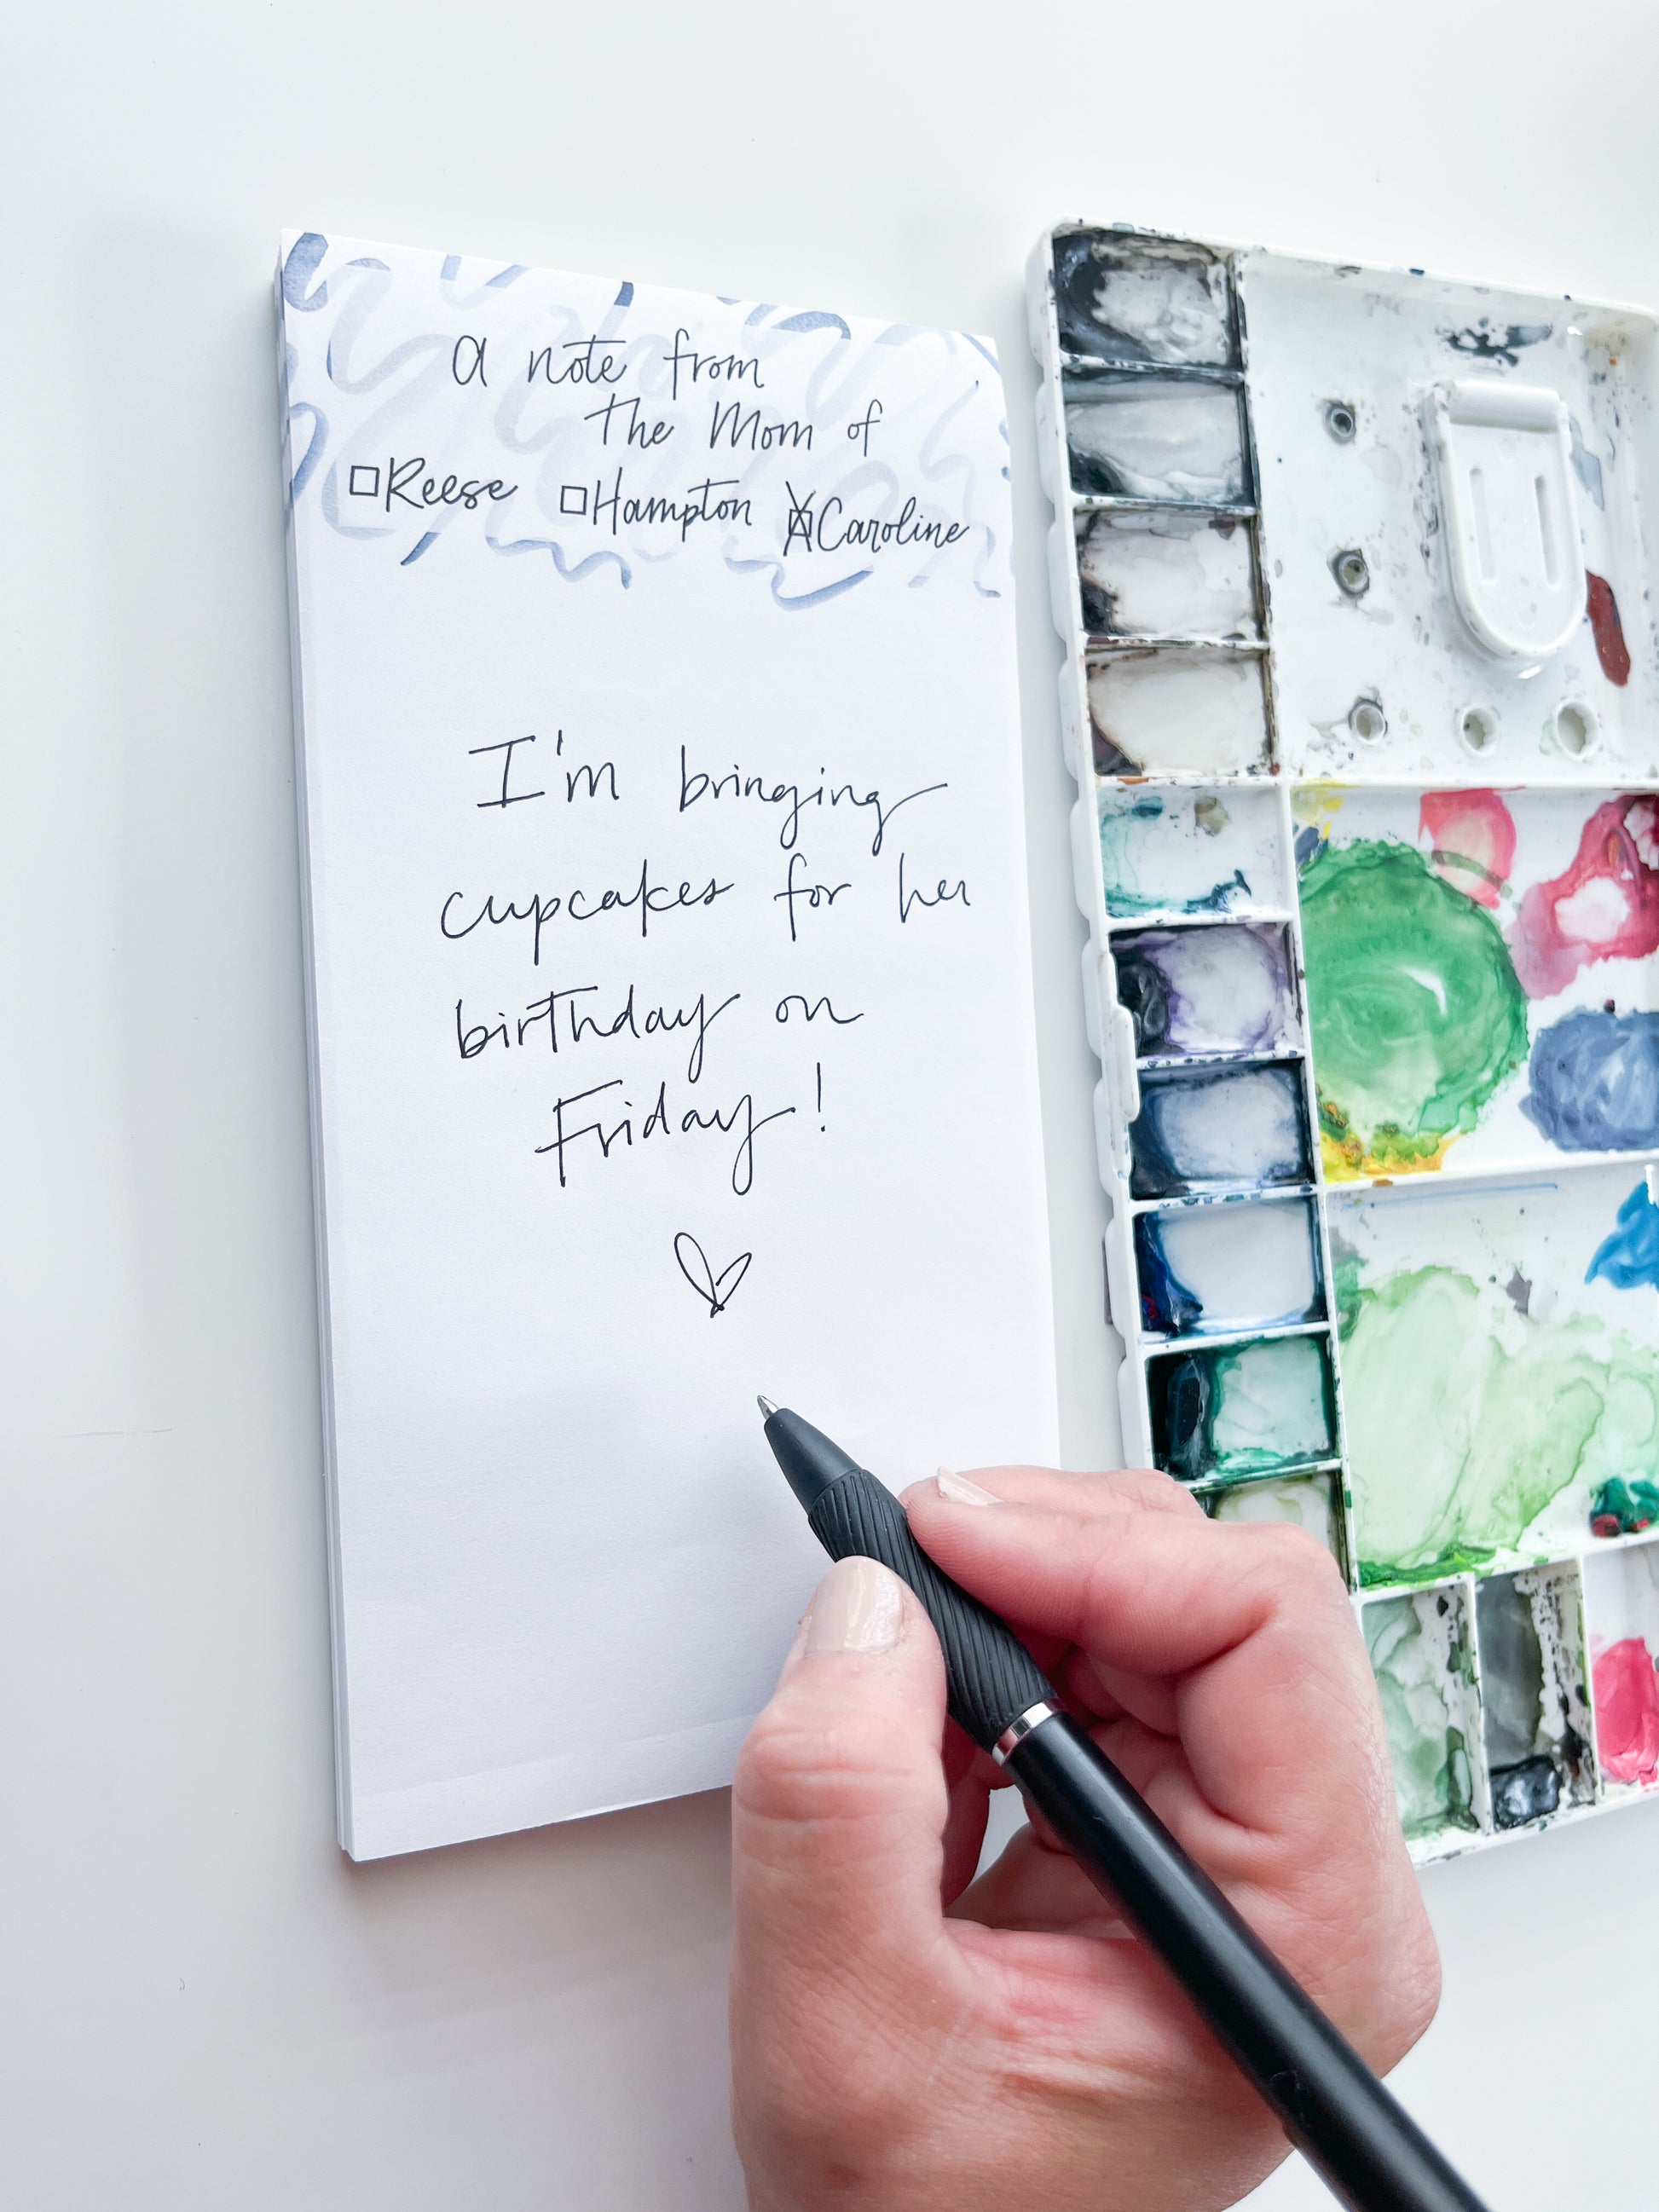 a note from
the Mom of
☐Reese ☐Hampton ☒Caroline
I'm bringing
cupcakes for her
birthday on
Friday!